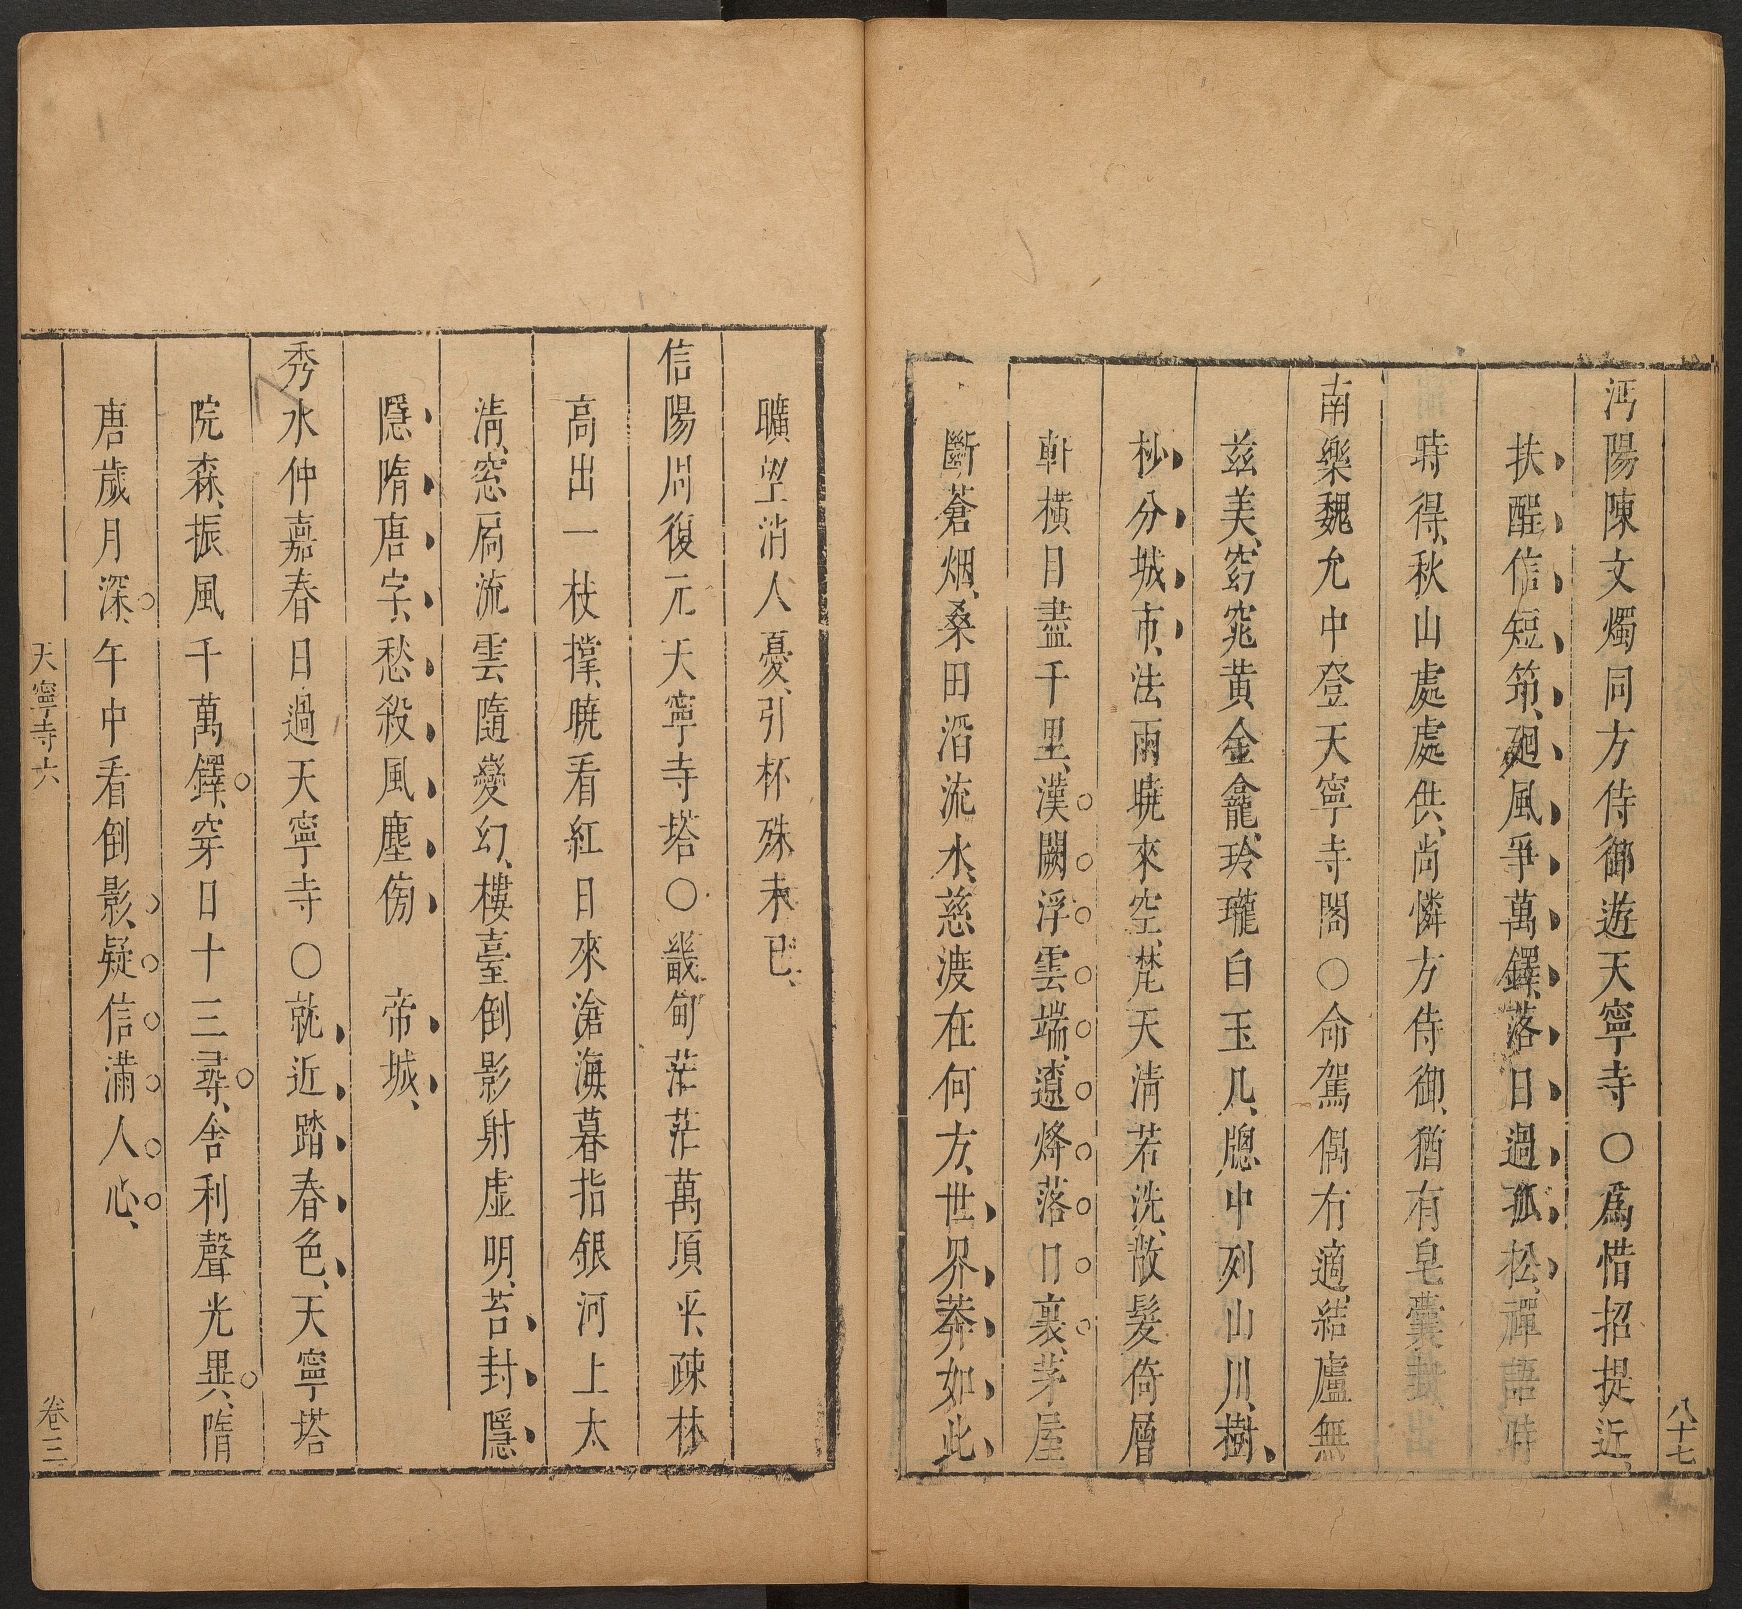 沔陽陳文燭同方侍御遊天寧寺○爲惜招提近、
扶酲信短筇、廻風爭萬鐸、落日過孤松、禪語時
時得、秋山處處供、尚憐方侍御、猶有皂囊封、
南樂魏允中登天寧寺閣○命駕偶有適、結廬無
兹美、窈窕黄金龕、玲瓏白玉几、牕中列山川、樹
杪分城市、法雨曉來空、梵天淸若洗、散髮倚層
軒、橫目盡千里、漢闕浮雲端、遼烽落日裏、茅屋
斷蒼烟、桑田滔流水、慈渡在何方、世界莽如此、
八十七
曠望消人憂、引杯殊未已、
信陽周復元天寧寺塔○畿甸茫茫萬頃平、疎林
高出一枝撑、曉看紅日來滄海、暮指銀河上太
淸、窓扃流雲隨變幻、樓臺倒影射虛明、苔封隱
隱隋唐字、愁殺風塵傍 帝城、
秀水仲嘉春日過天寧寺○就近踏春色、天寧塔
院森、振風千萬鐸、穿日十三尋、舍利聲光異、隋
唐歲月深、午中看倒影、疑信滿人心、
天寧寺六
卷三